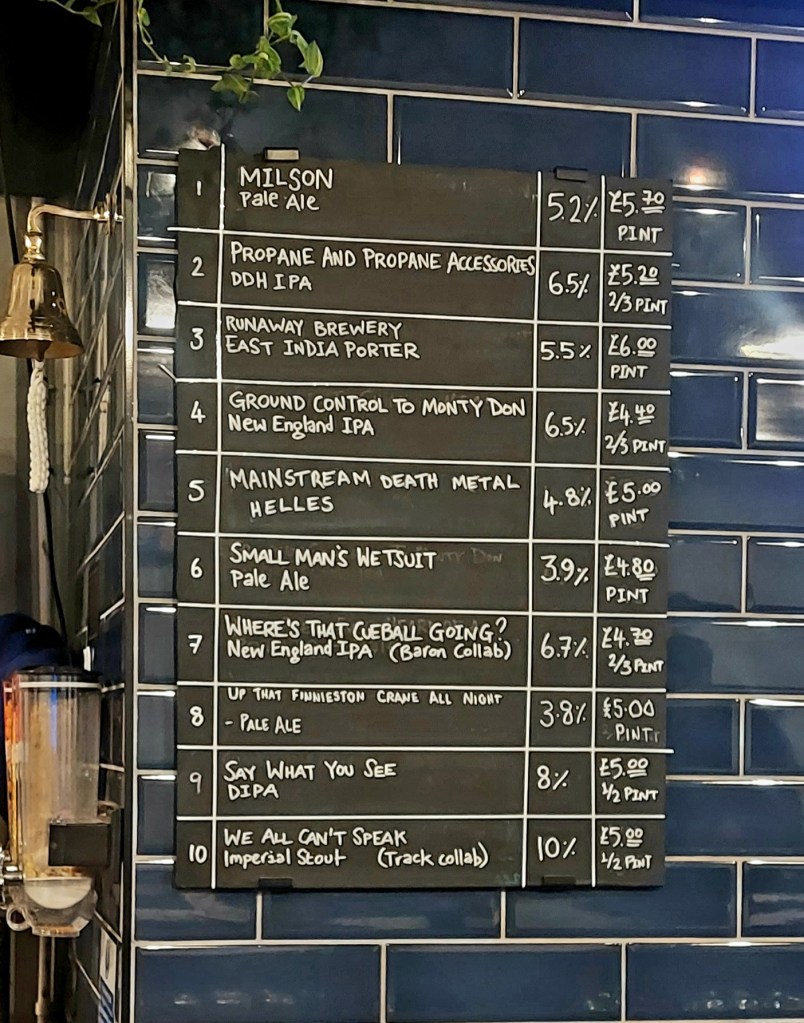 1 MILSON 5.2% £5.70
Pale Ale PINT
2 PROPANE AND PROPANE ACCESSORIES 6.5% £5.20
DDH IPA 2/3 PINT
3 RUNAWAY BREWERY 5.5% £6.00
EAST INDIA PORTER PINT
4 GROUND CONTROL TO MONTY DON 6.5% £4.40
New England IPA 2/3 PINT
5 MAINSTREAM DEATH METAL 4.8% £5.00
HELLES PINT
6 SMALL MAN'S WETSUIT 3.9% £4.80
Pale Ale PINT
7 WHERE'S THAT CUEBALL GOING? 6.7% £4.70
New England IPA (Baron Collab) 2/3 PINT
8 UP THAT FINNIESTON CRANE ALL NIGHT 3.8% £5.00
- PALE ALE PINT
9 SAY WHAT YOU SEE 8% £5.00
DIPA 1/2 PINT
10 WE ALL CAN'T SPEAK 10% £5.00
Imperial Stout (Track collab) 1/2 PINT